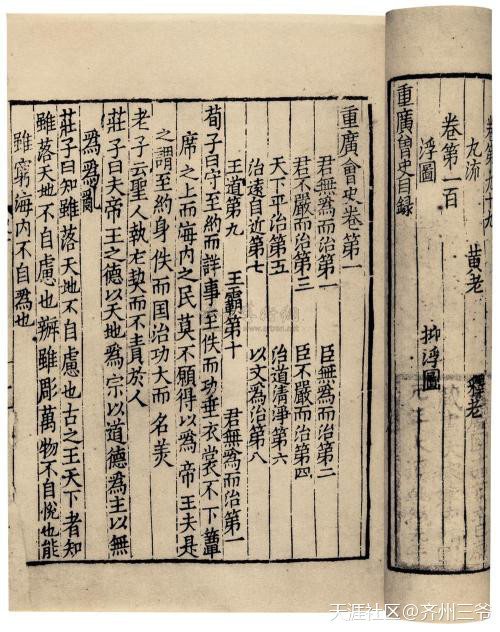 卷第九十九
九流 黄老 釋老
卷第一百
浮圖 抑浮圖
重廣會史目録
重廣會史卷第一
君無爲而治第一 臣無爲而治第二
君不嚴而治第三 臣不嚴而治第四
天下平治第五 治道清淨第六
治遠自近第七 以文爲治第八
王道第九 王霸第十 君無爲而治第一
荀子曰守至約而詳事至佚而功垂衣裳不下簟
席之上而海内之民莫不願得以爲帝王夫是
之謂至約身佚而国治功大而名美
老子云聖人執右契而不責於人
莊子曰夫帝王之德以天地爲宗以道德爲主以無
爲爲
莊子曰知雖落天地不自慮也古之王天下者知
雖落天地不自慮也辨雖彫萬物不自悅也能
雖窮海内不自爲也
天涯社区@齐州三爷